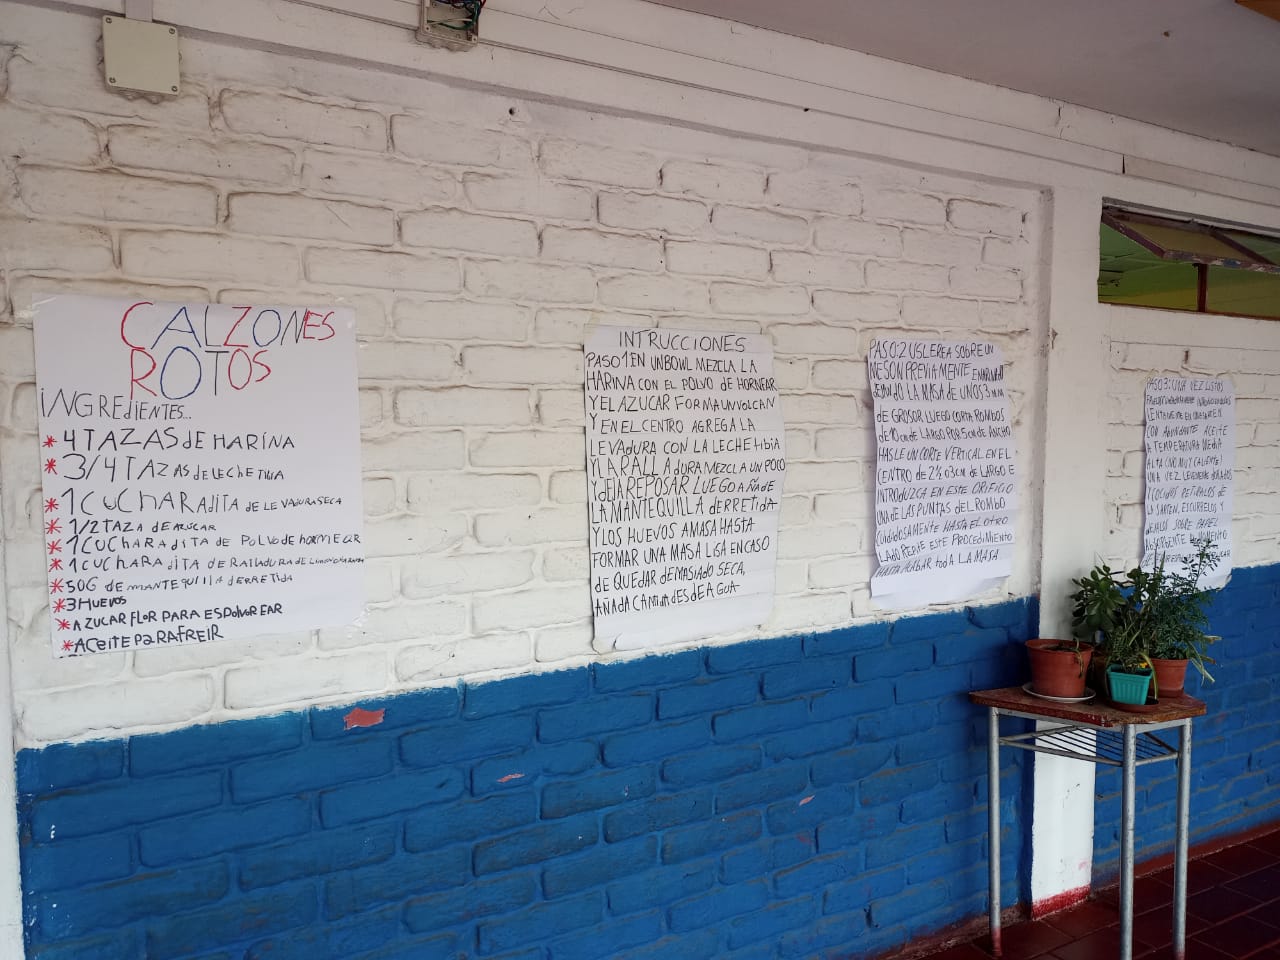 CALZONES
ROTOS
INGREDIENTES...
* 4 TAZAS DE HARINA
* 3/4 TAZAS DE LECHE TIBIA
* 1 CUCHARADITA DE LEVADURA SECA
* 1/2 TAZA DE AZUCAR
* 1 CUCHARADITA DE POLVO DE HORNEAR
* 1 CUCHARADITA DE RALLADURA DE LIMON O NARANJA
* 50G DE MANTEQUILLA DERRETIDA
* 3 HUEVOS
* AZUCAR FLOR PARA ESPOLVOREAR
* ACEITE PARA FREIR
INTRUCCIONES
PASO 1 EN UN BOWL MEZCLA LA
HARINA CON EL POLVO DE HORNEAR
Y EL AZUCAR FORMA UN VOLCAN
Y EN EL CENTRO AGREGA LA
LEVADURA CON LA LECHE tibia
Y LA RALLADURA MEZCLA UN POCO
Y DEJA REPOSAR LUEGO AÑADE
LA MANTEQUILLA DERRETIDA
Y LOS HUEVOS AMASA HASTA
FORMAR UNA MASA LISA EN CASO
DE QUEDAR DEMASIADO SECA,
AÑADA DE AGUA
PASO:2 USLEREA SOBRE UN
MESON PREVIAMENTE
LA MASA DE UNOS 3 MM
DE GROSOR LUEGO CORTA ROMBOS
DE 10 CM DE LARGO POR 5 CM DE ANCHO
HASLE UN CORTE VERTICAL EN EL
CENTRO DE 2 O 3 CM DE LARGO E
INTRODUZCA EN ESTE ORIFICIO
UNA DE LAS PUNTAS DEL ROMBO
CUIDADOSAMENTE HASTA EL OTRO
LADO REPITE ESTE PROCEDIMIENTO
HASTA ACABAR toda LA MASA
PASO 3: UNA VEZ LISTOS
CON ABUNDANTE ACEITE
A TEMPERATURA MEDIA
ALTA (NO MUY CALIENTE)
UNA VEZ
Y COCIDOS RETIRALOS DE
LA SARTEN, ESCURRELOS Y
DEJALOS SOBRE PAPEL
ABSORBENTE